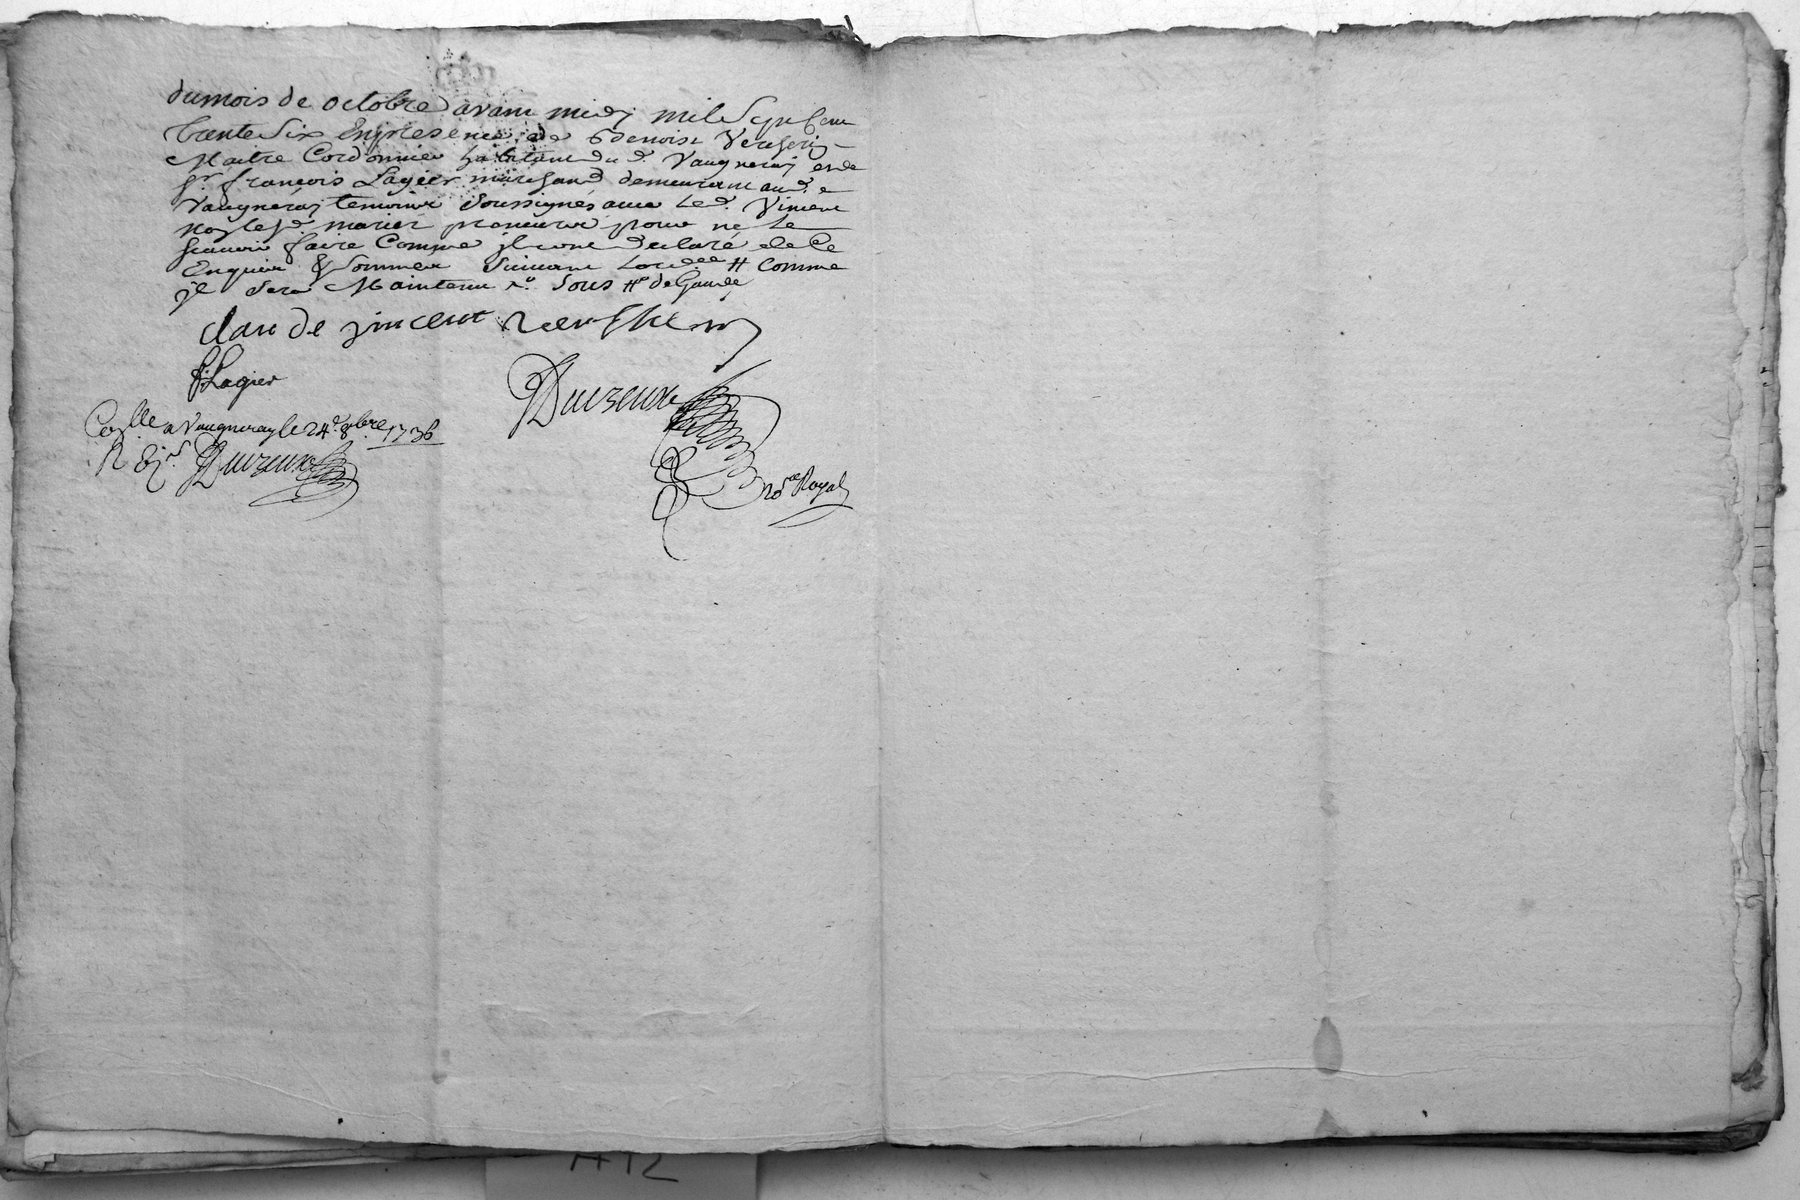 du mois de octobre avant midy mil sept cent
trente six En presence de Benoist Vercherin
Maitre Cordonnier habitant du d. Vaugneray et de
Sr. françois Lagier marchand demeurant aud.
Vaugneray temoins soussignés avec Led. Vincent
non led. marier preneurs pour ne le
scavoir faire Comme jl ont declaré de Ce
Enquis & sommés suivant Lord.ce # Comme
jl sera Maintenu
clau de vincent
f. Lagier
Duizeux
Collé a Vaugneray le 24e. 8bre. 1736
R
Duizeux
Royal
A12